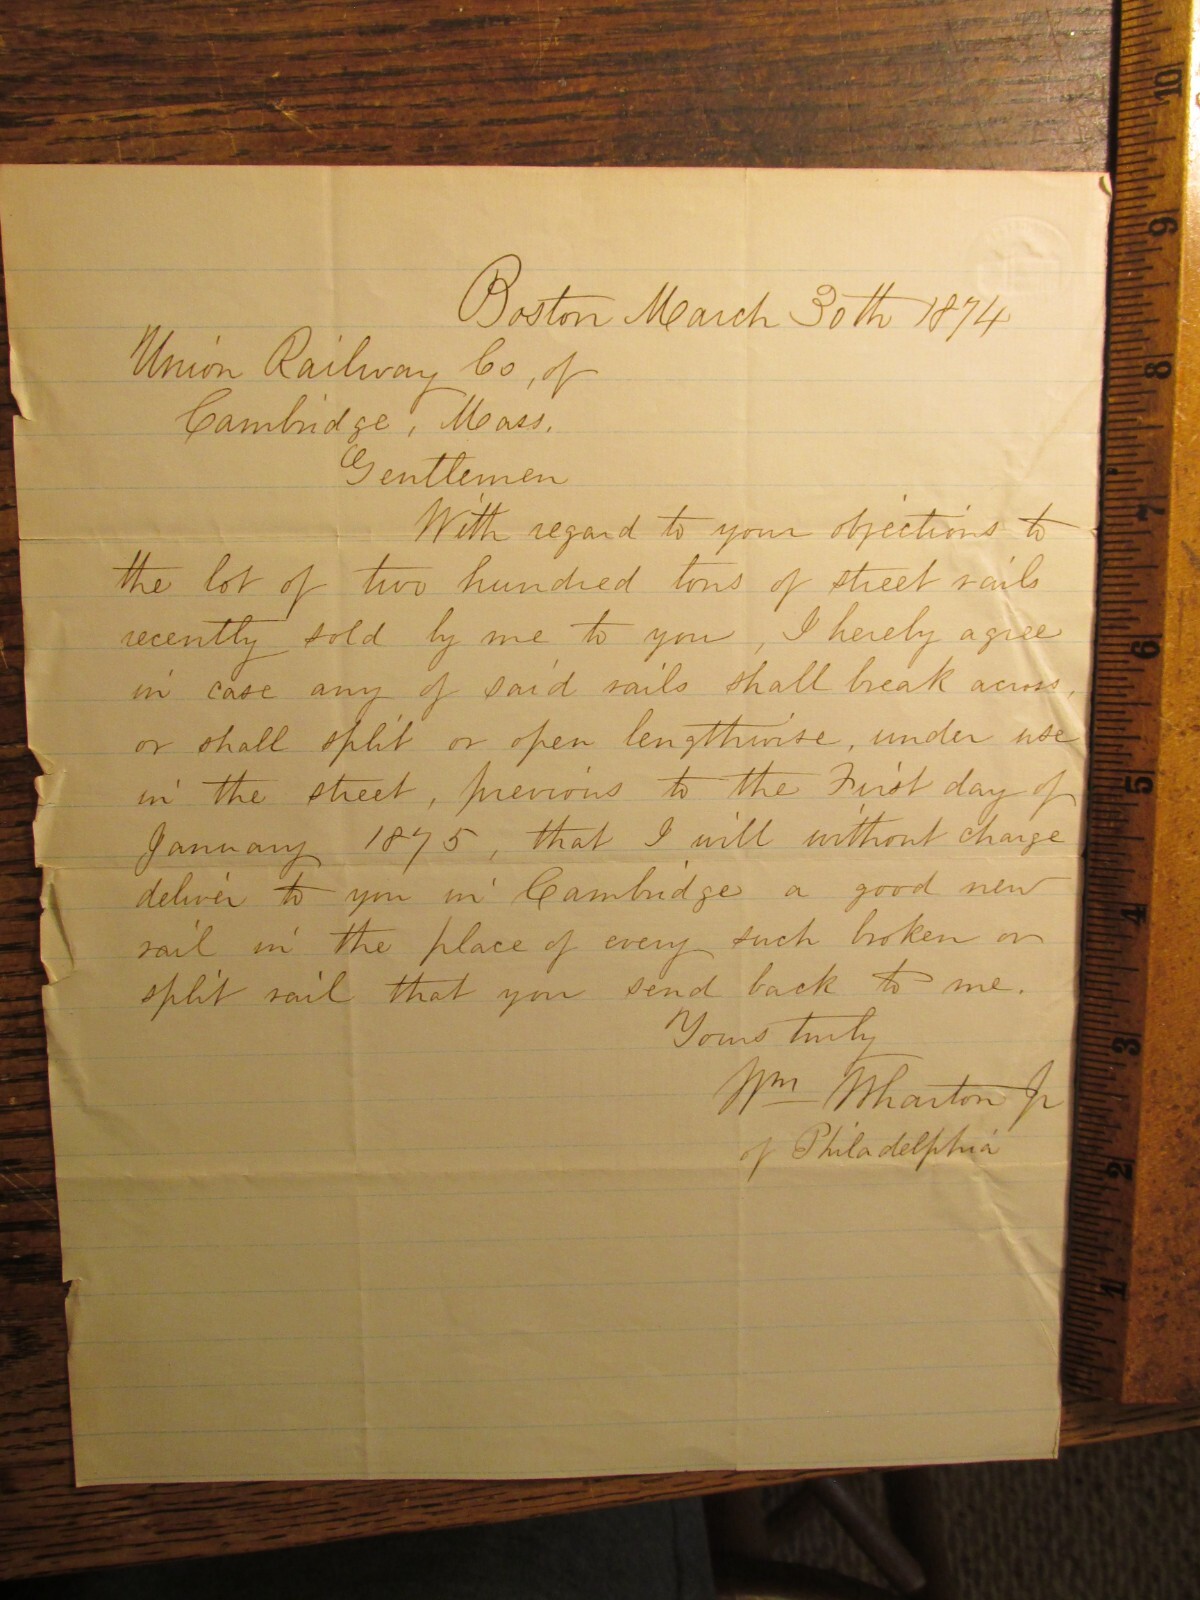 Boston March 30th 1874
Union Railway Co, of
Cambridge, Mass.
Gentlemen
With regard to your objections to
the lot of two hundred tons of street rails
recently sold by me to you, I hereby agree
in case any of said rails shall break across,
or shall split or open lengthwise, under use
in the street, previous to the First day of
January 1875, that I will without charge
deliver to you in Cambridge a good new
rail in the place of every such broken or
split rail that you send back to me.
Yours truly
Wm Wharton Jr
of Philadelphia
10
9
8
7
6
5
4
3
2
1